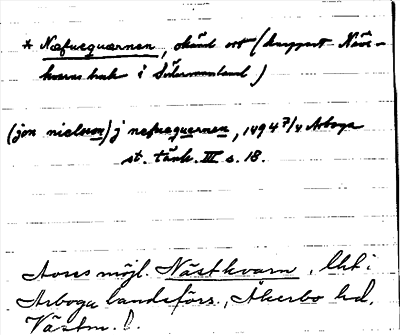 * Næfuequærnen, okänd ort (knappast Näve-
kvarns bruk i Södermanland)
(jon nielsson) j nefuequernen, 1494 7/4 Arboga
st. tänk. III s. 18.
Avses möjl. Nästkvarn, lht i
Arboga landsförs., Åkerbo hd,
Västm.l.